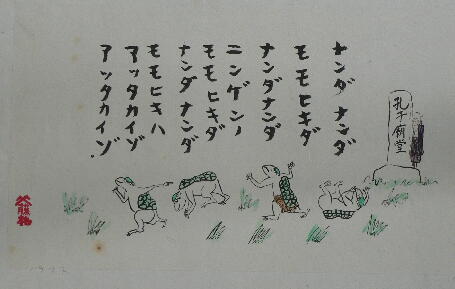 ナンダ ナンダ
モモヒキダ
ナンダナンダ
ニンゲンノ
モモヒキダ
ナンダ ナンダ
モモヒキハ
アッタカイゾ
アッタカイゾ.
孔子廟堂